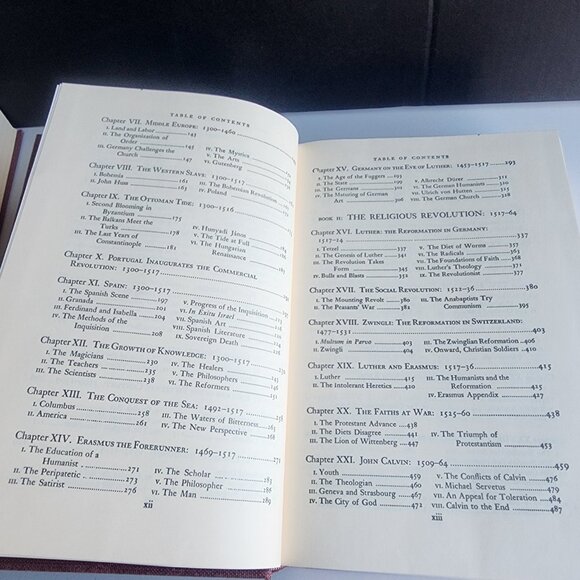 TABLE OF CONTENTS
Chapter VII. MIDDLE EUROPE: 1300-1460
I. Land and Labor 143
II. The Organization of
Order 145
III. Germany Challenges the
Church 147
IV. The Mystics
V. The Arts
VI. Gutenberg
Chapter VIII. THE WESTERN SLAVS: 1300-1517
I. Bohemia 161
II. John Huss 163
III. The Bohemian Revolution
IV. Poland
Chapter IX. THE OTTOMAN TIDE: 1300-1516
I. Second Blooming in
Byzantium 175
II. The Balkans Meet the
Turks 178
III. The Last Years of
Constantinople 181
IV. Hunyadi János
V. The Tide at Full
VI. The Hungarian
Renaissance
Chapter X. PORTUGAL INAUGURATES THE COMMERCIAL
REVOLUTION: 1300-1517
Chapter XI. SPAIN: 1300-1517
I. The Spanish Scene 197
II. Granada 201
III. Ferdinand and Isabella 204
IV. The Methods of the
Inquisition 208
V. Progress of the Inquisition
VI. In Exitu Israel
VII. Spanish Art
VIII. Spanish Literature
IX. Sovereign Death
Chapter XII. THE GROWTH OF KNOWLEDGE: 1300-1517
I. The Magicians 230
II. The Teachers 235
III. The Scientists 238
IV. The Healers
V. The Philosophers
VI. The Reformers 251
Chapter XIII. THE CONQUEST OF THE SEA: 1492-1517
I. Columbus 258
II. America 261
III. The Waters of Bitterness
IV. The New Perspective 268
Chapter XIV. ERASMUS THE FORERUNNER: 1469-1517
I. The Education of a
Humanist 271
II. The Peripatetic 273
III. The Satirist 276
IV. The Scholar
V. The Philosopher
VI. The Man 289
xii
TABLE OF CONTENTS
Chapter XV. GERMANY ON THE EVE OF LUTHER: 1453-1517 293
I. The Age of the Fuggers 293
II. The State 299
III. The Germans 301
IV. The Maturing of German
Art 306
V. Albrecht Dürer 311
VI. The German Humanists
VII. Ulrich von Hutten
VIII. The German Church
BOOK II: THE RELIGIOUS REVOLUTION: 1517-64
Chapter XVI. LUTHER: THE REFORMATION IN GERMANY:
1517-24 337
I. Tetzel 337
II. The Genesis of Luther 341
III. The Revolution Takes
Form 345
IV. Bulls and Blasts 352
V. The Diet of Worms 357
VI. The Radicals
VII. The Foundations of Faith 368
VIII. Luther's Theology 372
IX. The Revolutionist 377
Chapter XVII. THE SOCIAL REVOLUTION: 1522-36 380
I. The Mounting Revolt 380
II. The Peasants' War 382
III. The Anabaptists Try
Communism 395
Chapter XVIII. ZWINGLI: THE REFORMATION IN SWITZERLAND:
1477-1531 403
I. Multum in Parvo 403
II. Zwingli 404
III. The Zwinglian Reformation 406
IV. Onward, Christian Soldiers 410
Chapter XIX. LUTHER AND ERASMUS: 1517-36 415
I. Luther 415
II. The Intolerant Heretics 420
III. The Humanists and the
Reformation 425
IV. Erasmus Appendix 427
Chapter XX. THE FAITHS AT WAR: 1525-60 438
I. The Protestant Advance 438
II. The Diets Disagree 441
III. The Lion of Wittenberg 447
IV. The Triumph of
Protestantism 453
Chapter XXI. JOHN CALVIN: 1509-64 459
I. Youth 459
II. The Theologian 460
III. Geneva and Strasbourg 467
IV. The City of God 472
V. The Conflicts of Calvin 476
VI. Michael Servetus 479
VII. An Appeal for Toleration 484
VIII. Calvin to the End 487
xiii